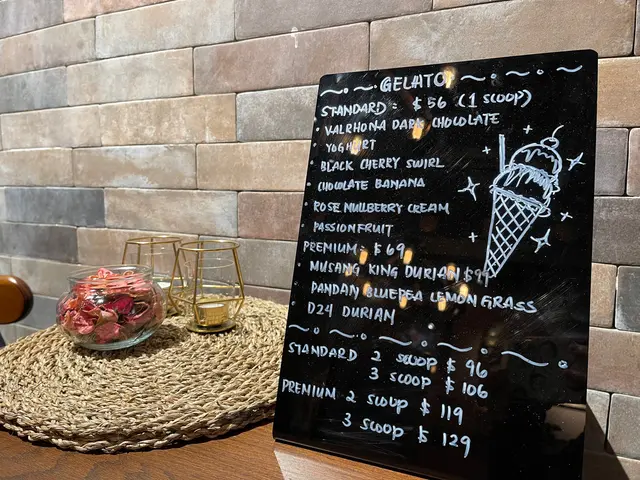 GELATO
STANDARD: $56 (1 SCOOP)
• VALRHONA DARK CHOCOLATE
• YOGHURT
BLACK CHERRY SWIRL
• CHOCOLATE BANANA
• ROSE MULBERRY CREAM
• PASSIONFRUIT
PREMIUM: $69
• MUSANG KING DURIAN $99
• PANDAN BLUEPEA LEMON GRASS
• D24 DURIAN
STANDARD 2 SCOOP $ 96
3 SCOOP $ 106
PREMIUM 2 SCOOP $ 119
3 SCOOP $ 129